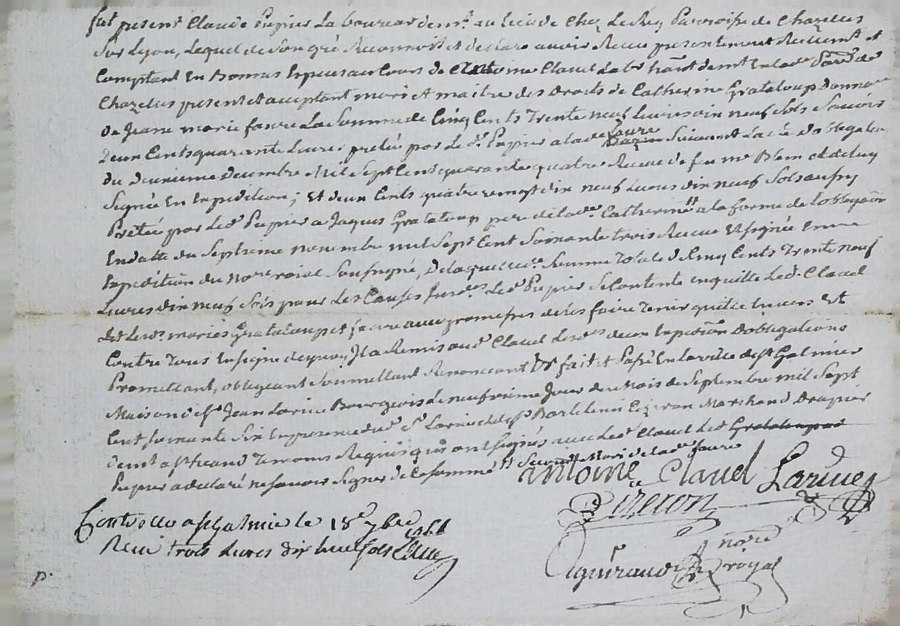 fut present Claude Pupier Laboureur demt. au lieu de Chez Le Roy Paroisse de Chazelles
Sur Lyon, Lequel de Son gré Reconnoit et declare avoir Receu presentement Reelemt. et
Comptant En Bonnes Especes au Cours de Antoine Claud Labr habt demt En lad. Parr. de
Chazelus present et acceptant mari et maitre des Droits de Catherine Grataloup Donnre
de Jeane marie faure La Somme de Cinq Cents Trente neuf Livres dix neuf Sols Scavoir
deux Cents quarante Livres pretée par Led. Pupier a lade. faure Suivant La de dobligation
du deuxieme decembre Mil Sept Cent quarante quatre Receue de feu me Blein et deluy
Signée En Expedition; Et deux Cents quatre vingt dix neuf Livres dix neuf Sols aussy
Pretée par Led. Pupier a Jaques Grataloup pere de lade. Catherine a la forme de Lobligaon
En datte du Septieme novembre mil Sept Cent Soixante trois Receue Et Signée en
Expedition du nore. roial Soussigné, De laquelle de. Somme Totale de Cinq Cents Trente neuf
Livres dix neuf Sols pour Les Causes Susdes. Led. Pupier Se Contente En quitte Led. Claud
Et Lesds. maries Grataloup et faure avec promesse de les faire Tenir quitte Envers Et
Contre Tous En Signe de quoy Il a Remis aud. Claud Lesdes. deux Expeditions Dobligations
Promettant, obligeant Soumettant Renoncant &a fait et Passé En la ville de St. Galmier
Maison de Sr. Jean Larive Bourgeois Le neufvieme Jour du Mois de Septembre mil Sept
Cent Soixante Six En presence dud. Sr. Larive et de Sr. Bartelemi Marchand Drapier
demt. a St. Temoins Requis qui ont Signés avec Led. Claud Led.
Pupier a declaré ne Scavoir Signer de Ce Sommé Second Mari de lade. faure
Antoine Claud Larive
notre
royal
Controllé a St. Galmie le 18e 7bre 1766
Receu trois Livres dix huit sols
p.